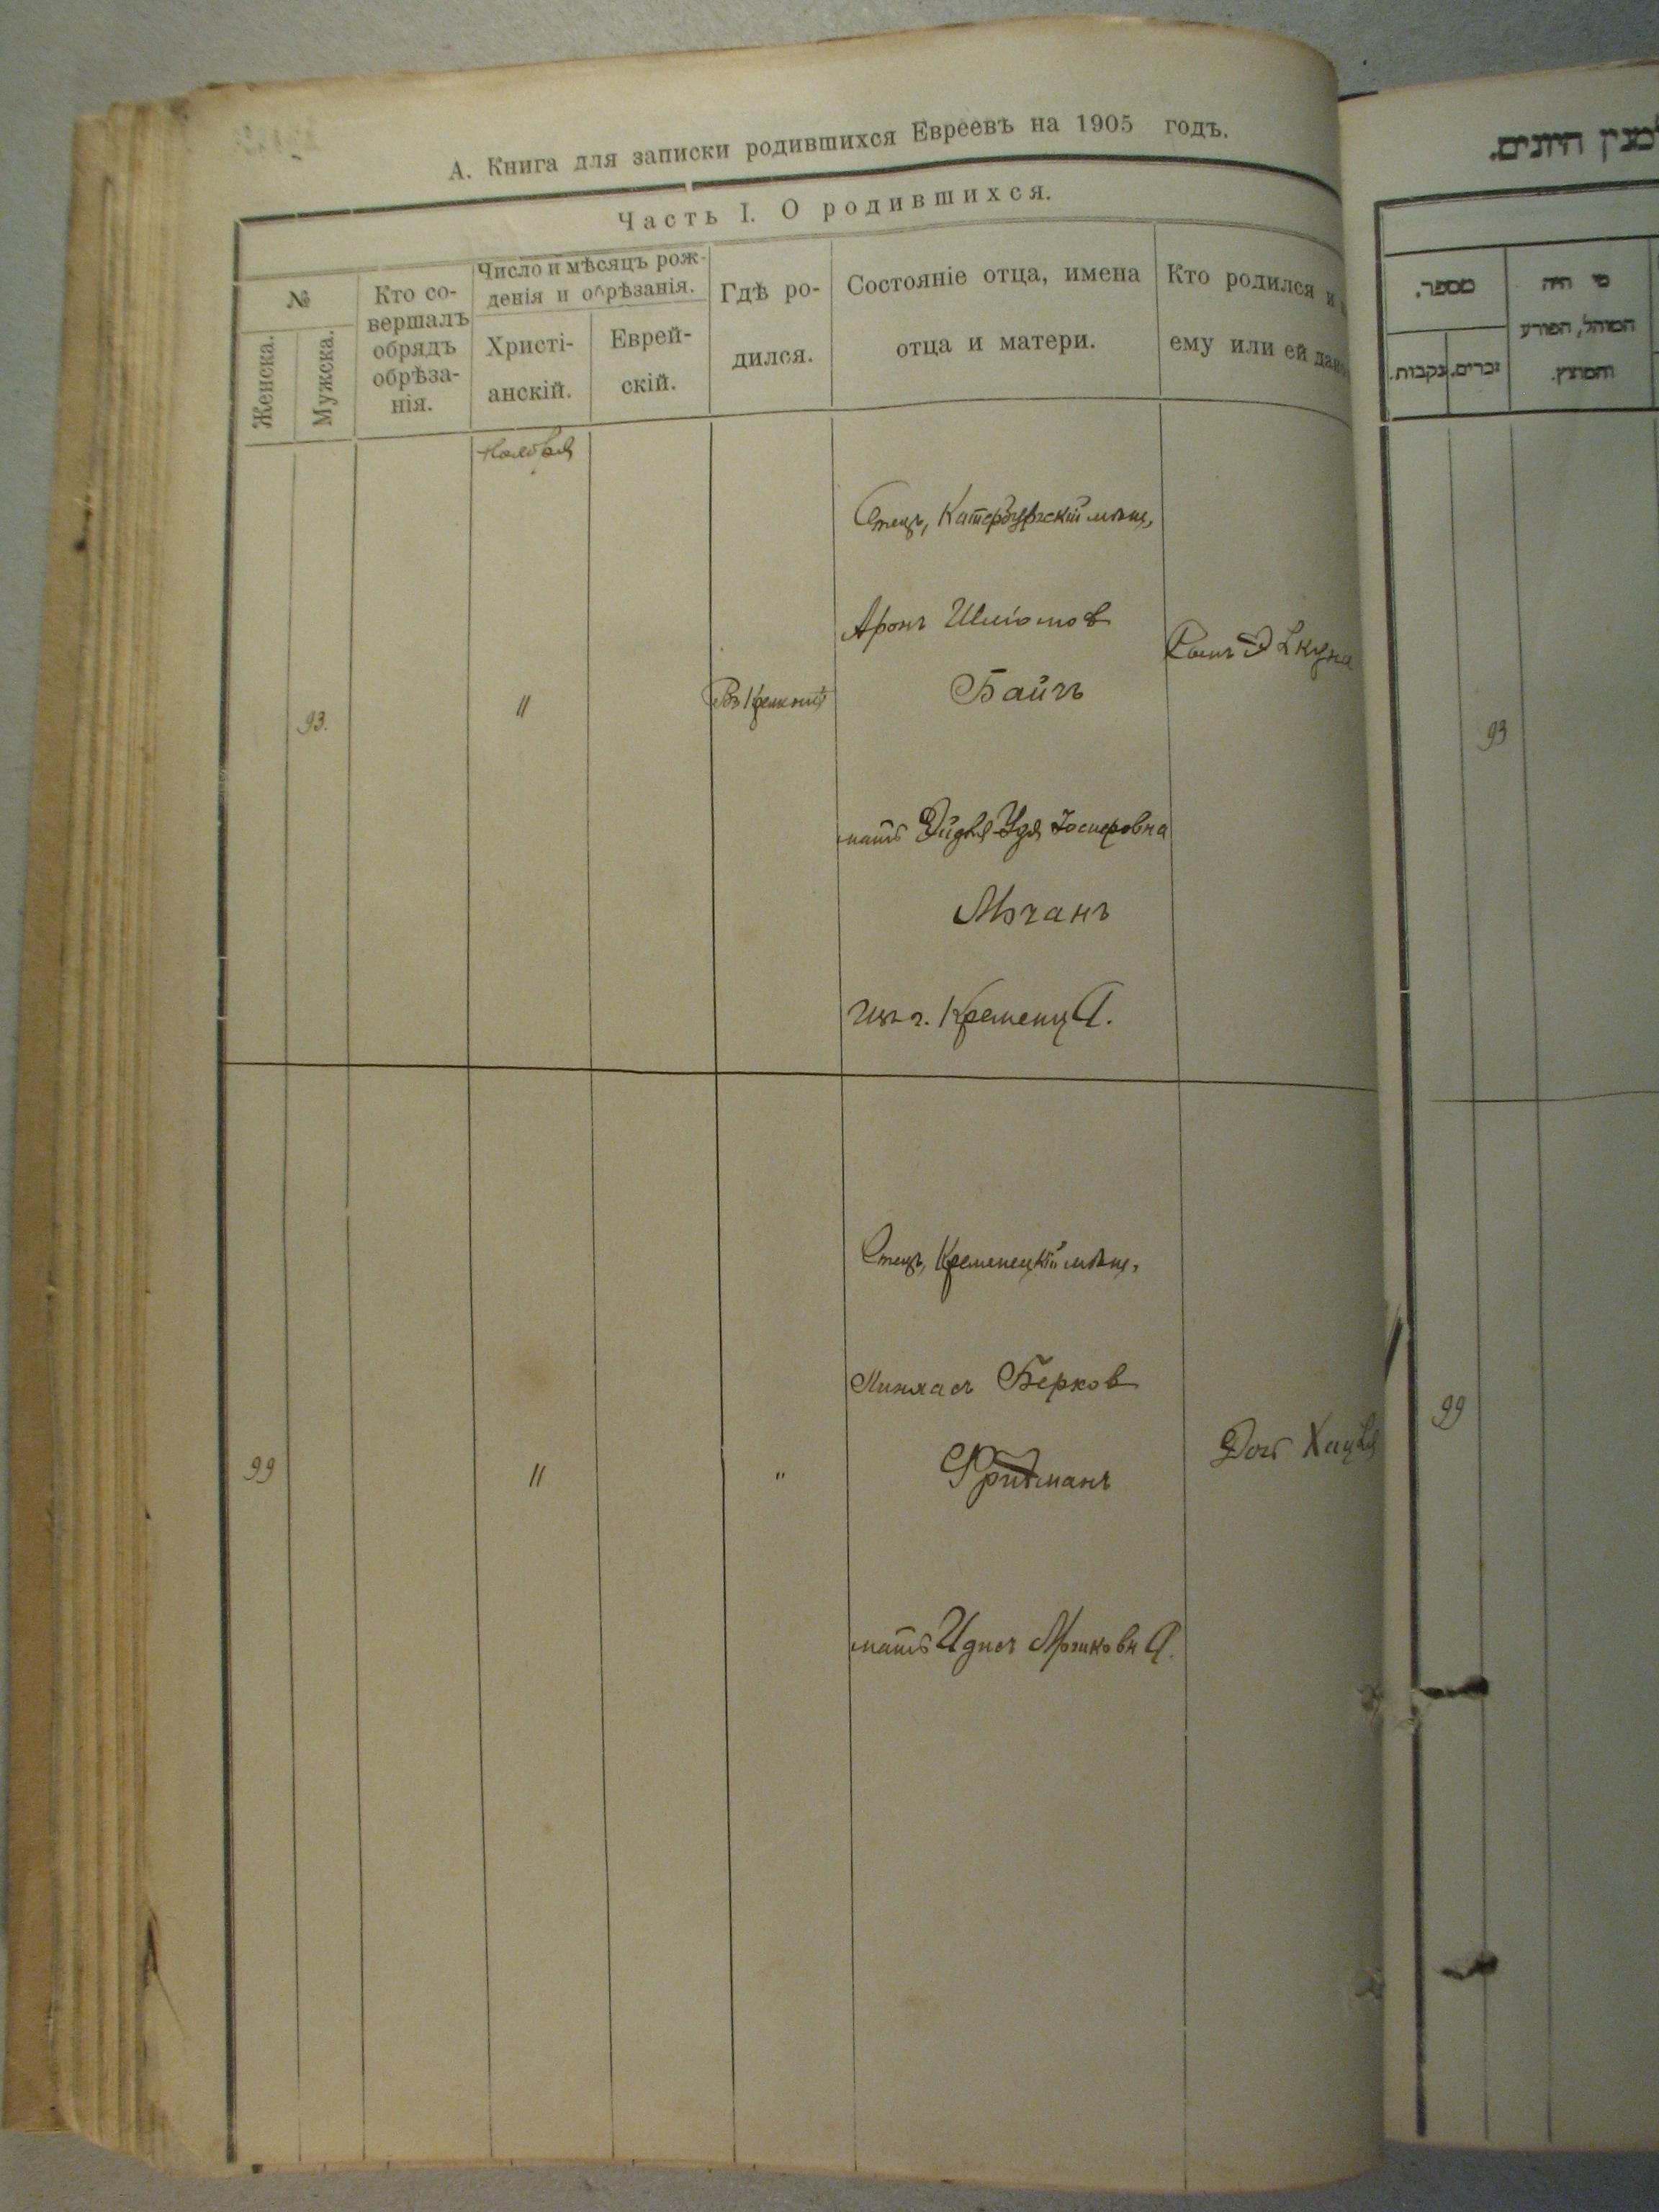 А. Книга для записки родившихся Евреевъ на 1905 годъ.
Часть I. О родившихся.
№
Женска.
Мужска.
Кто со-
вершалъ
обрядъ
обрѣза-
нія.
Число и мѣсяцъ рож-
денія и обрѣзанія.
Христі-
анскій.
Еврей-
скій.
Гдѣ ро-
дился.
Состояніе отца, имена
отца и матери.
Кто родился и
ему или ей дано
Ноября
93.
11
Въ Кремнцѣ
Отецъ, Катербургскій мѣщ.
Аронъ Шліомов
Байчъ
мать Эйдля-Удя Іосифовна
Мѣчанъ
изъ г. Кременца.
Сынъ
99
11
"
Отецъ, Кременецкій мѣщ.
Пинхасъ Берков
Фридманъ
мать Ицковна.
Дочь
מספר.
זכרים.
נקבות.
מי היה
המוהל, הפורע
והמוצץ.
93
99